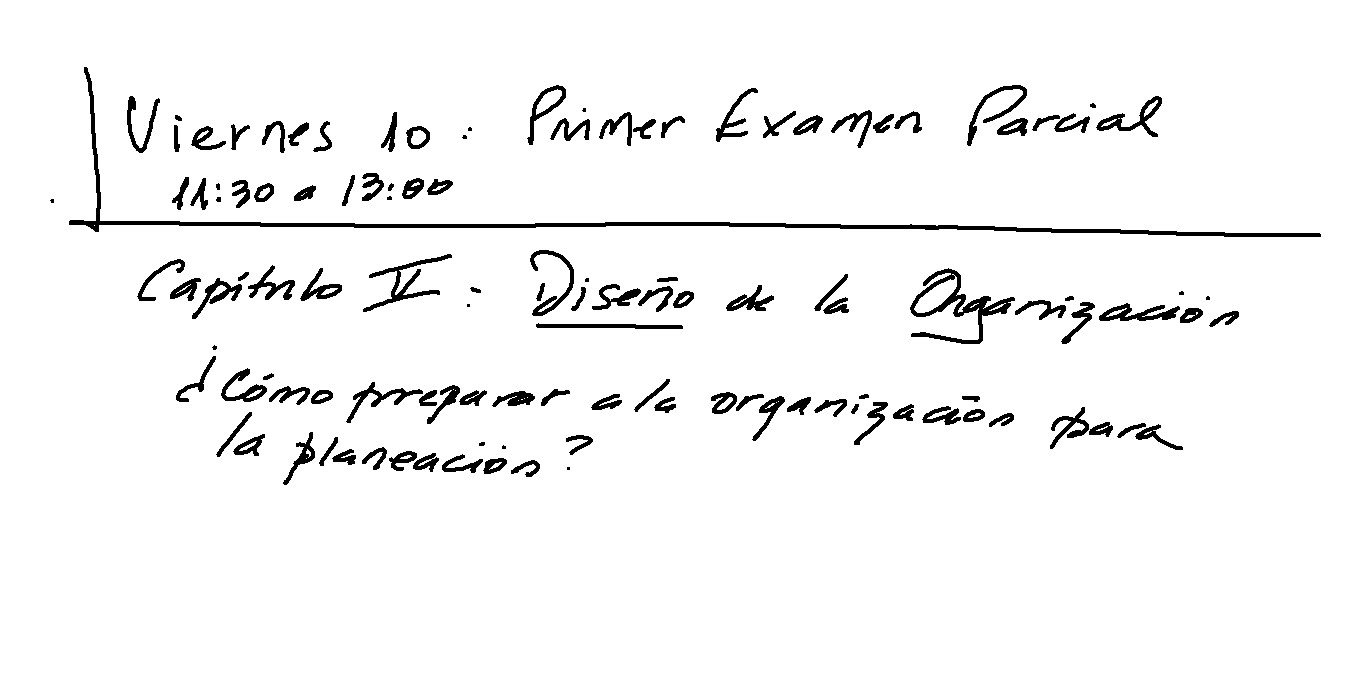 Viernes 10: Primer Examen Parcial
11:30 a 13:00
Capítulo V: Diseño de la Organización
¿Cómo preparar a la organización para
la planeación?